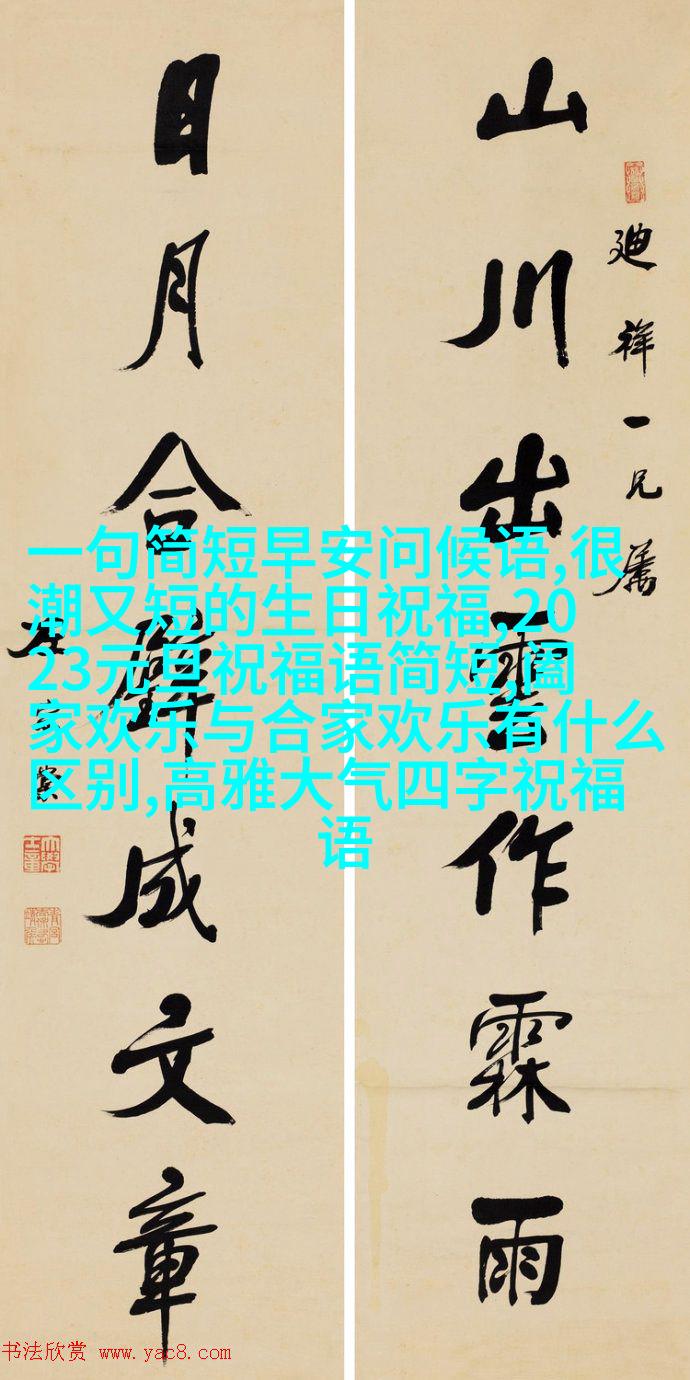 廸祥一兄属
山川出雲作霖雨
日月合璧成文章
左宗棠
一句简短早安问候语,很
潮又短的生日祝福,20
23元旦祝福语简短,阖
家欢乐与合家欢乐有什么
区别,高雅大气四字祝福
语
书法欣赏 www.yac8.com